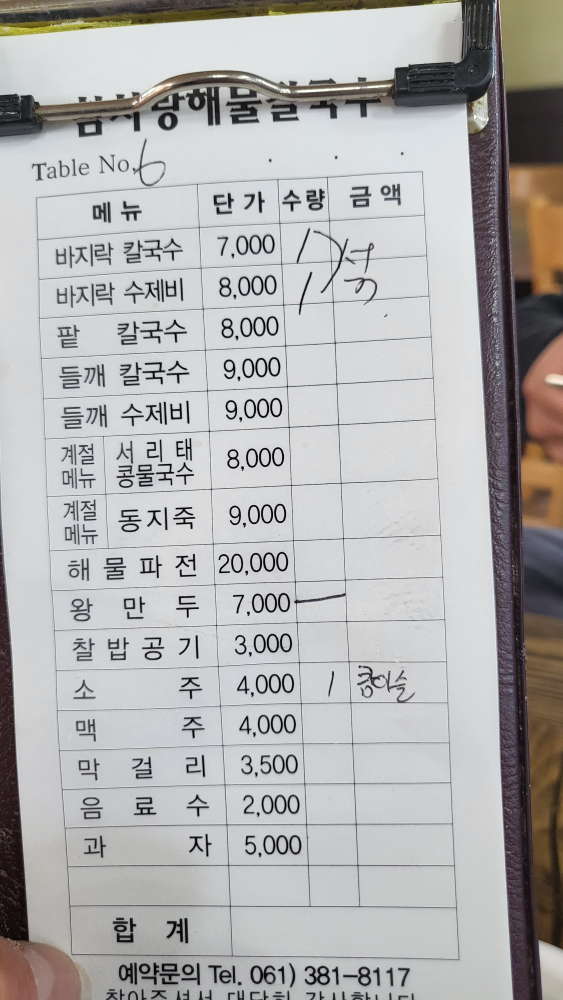 참사랑해물칼국수
Table No. 6
메뉴 단가 수량 금액
바지락 칼국수 7,000 1
바지락 수제비 8,000 1
팥 칼국수 8,000
들깨 칼국수 9,000
들깨 수제비 9,000
계절메뉴 서리태 콩물국수 8,000
계절메뉴 동지죽 9,000
해물파전 20,000
왕만두 7,000 —
찰밥공기 3,000
소주 4,000 1
맥주 4,000
막걸리 3,500
음료수 2,000
과자 5,000
합계
예약문의 Tel. 061) 381-8117
찾아주셔서 대단히 감사합니다